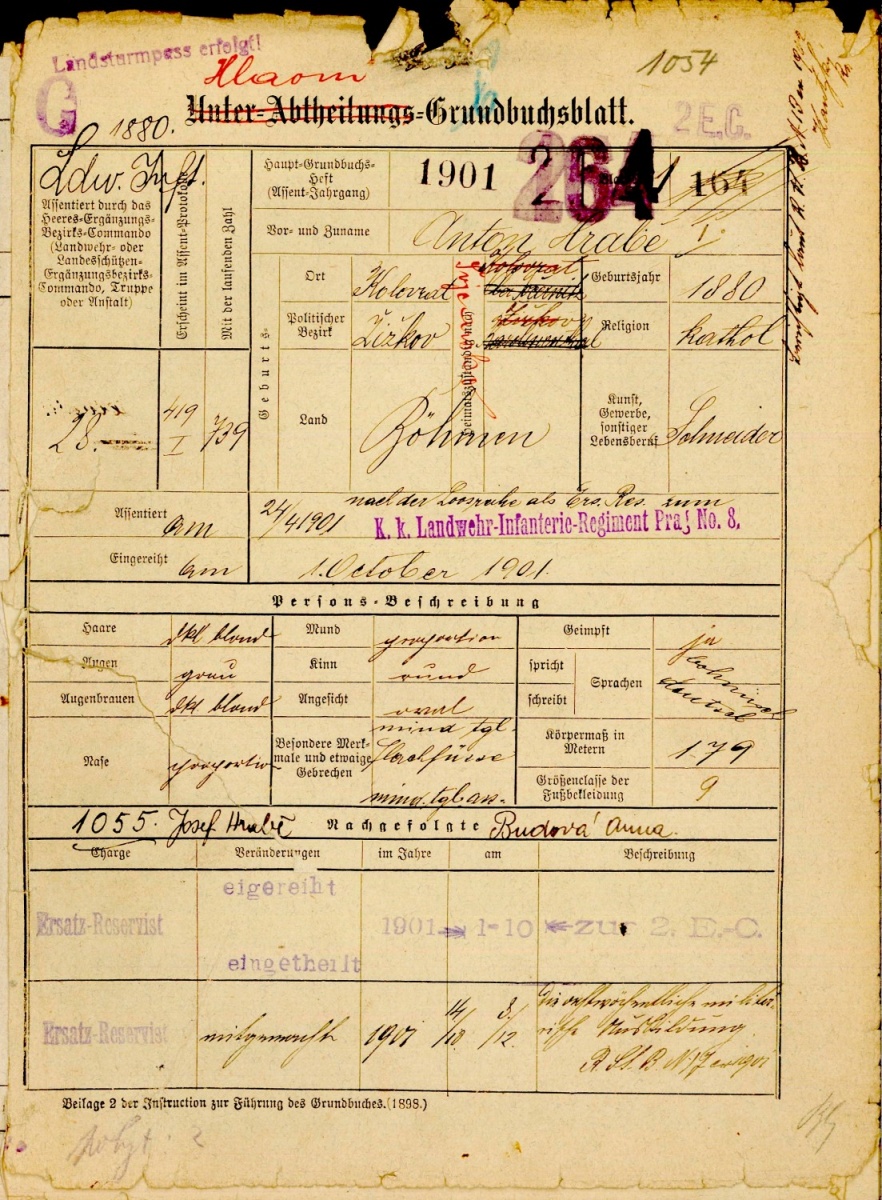 Landsturmpass erfolgt!
1054
G
1880.
Unter-Abtheilungs-Grundbuchsblatt.
2 E.C.
Ldw. Inft.
Assentiert durch das
Heeres-Ergänzungs-
Bezirks-Commando
(Landwehr- oder
Landesschützen-
Ergänzungsbezirks-
Commando, Truppe
oder Anstalt)
Erscheint im Assent-Protokolle
Mit der laufenden Zahl
Haupt-Grundbuchs-
Heft
(Assent-Jahrgang)
1901
264
164
Vor- und Zuname
Anton Hrabě I.
Geburts-
Ort
Kolovrat
Kolovrat
Geburtsjahr
1880
Politischer
Bezirk
Žižkov
heimatszuständig nach
Žižkov
Religion
kathol
28.
419
I
739
Land
Böhmen
Kunst,
Gewerbe,
sonstiger
Lebensberuf
Schneider
Assentiert
am
24/4 1901
nach der Losreihe als Ers. Res. zum
K. k. Landwehr-Infanterie-Regiment Prag No. 8.
Eingereiht
am
1. October 1901.
Persons-Beschreibung
Haare
dkl blond
Mund
proportion
Geimpft
ja
Augen
grau
Kinn
rund
spricht
schreibt
Sprachen
böhmisch
deutsch
Augenbrauen
dkl. blond
Angesicht
oval
Nase
proportion
Besondere Merk-
male und etwaige
Gebrechen
mind tgl.
Flachfüsse
mind. tgl.
Körpermaß in
Metern
1.79
Größenclasse der
Fußbekleidung
9
1055. Josef Hrabě
Nachgefolgte
Budová Anna.
Charge
Veränderungen
im Jahre
am
Beschreibung
Ersatz-Reservist
eigereiht
eingetheilt
1901
1-10
zur 2. E.-C.
Ersatz-Reservist
mitgemacht
1901
14/10
8./12.
die achtwöchentliche militär-
ische Ausbildung
Beilage 2 der Instruction zur Führung des Grundbuches. (1898.)